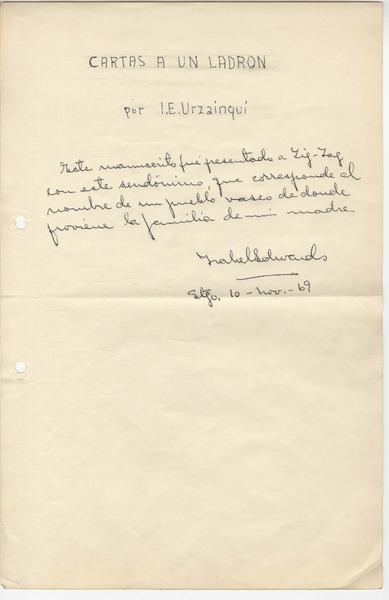 CARTAS A UN LADRON
por I.E.Urzainqui
Este manuscrito fué presentado a Zig-Zag
con este seudónimo, que corresponde al
nombre de un pueblo vasco de donde
proviene la familia de mi madre
Isabel Edwards
Stgo, 10-Nov.-69